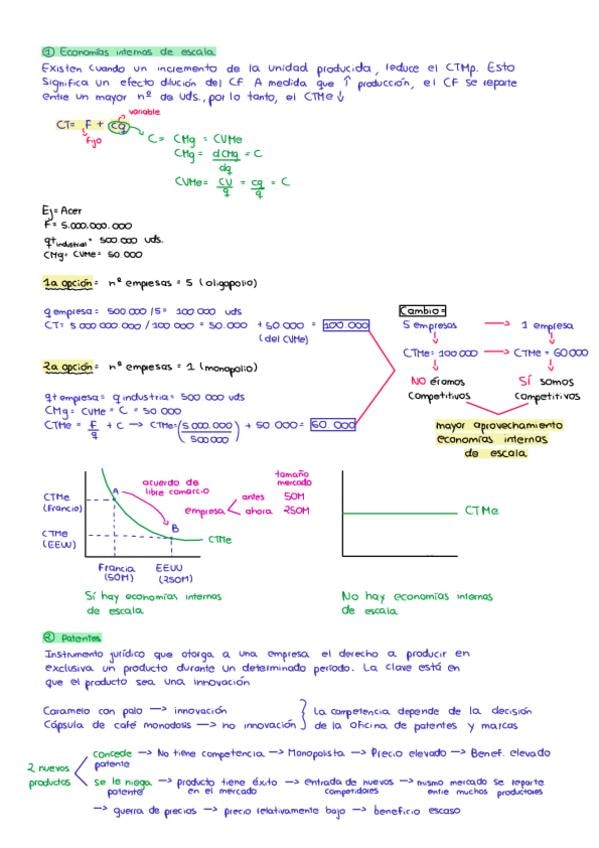 ① Economías internas de escala
Existen cuando un incremento de la unidad producida, reduce el CTMp. Esto
Significa un efecto dilución del CF. A medida que ↑ producción, el CF se reparte
entre un mayor nº de uds., por lo tanto, el CTMe ↓
variable
CT= F + cq
Fijo
C= CMg = CVMe
CMg = dCMg/dq = C
CVMe= CV/q = cq/q = C
Ej= Acer
F= 5.000.000.000
qt industrial= 500 000 uds.
CMg= CVMe= 50.000
1a opción= nº empresas = 5 (oligopolio)
q empresa= 500 000 /5= 100 000 uds
CT= 5 000 000 000 / 100 000 = 50.000 + 50 000 = 100.000
(del CVMe)
2a opción= nº empresas = 1 (monopolio)
qt empresa= q industria= 500 000 uds
CMg= CVMe = C = 50 000
CTMe = F/q + C → CTMe= (5.000.000/500000) + 50 000= 60.000
Cambio=
5 empresas → 1 empresa
CTMe= 100 000 → CTMe = 60 000
NO éramos Sí somos
competitivos competitivos
mayor aprovechamiento
economías internas
de escala
CTMe
(Francia)
CTMe
(EEUU)
A
acuerdo de
libre comercio
B
CTMe
tamaño
mercado
empresa < antes 50M
ahora 250M
Francia EEUU
(50M) (250M)
Sí hay economías internas
de escala
CTMe
No hay economías internas
de escala
② Patentes
Instrumento jurídico que otorga a una empresa el derecho a producir en
exclusiva un producto durante un determinado período. La clave está en
que el producto sea una innovación
Caramelo con palo → innovación
Cápsula de café monodosis → no innovación
} La competencia depende de la decisión
de la oficina de patentes y marcas
2 nuevos
productos
concede patente → No tiene competencia → Monopolista → Precio elevado → Benef. elevado
se le niega patente → producto tiene éxito en el mercado → entrada de nuevos competidores → mismo mercado se reparte entre muchos productores
→ guerra de precios → precio relativamente bajo → beneficio escaso